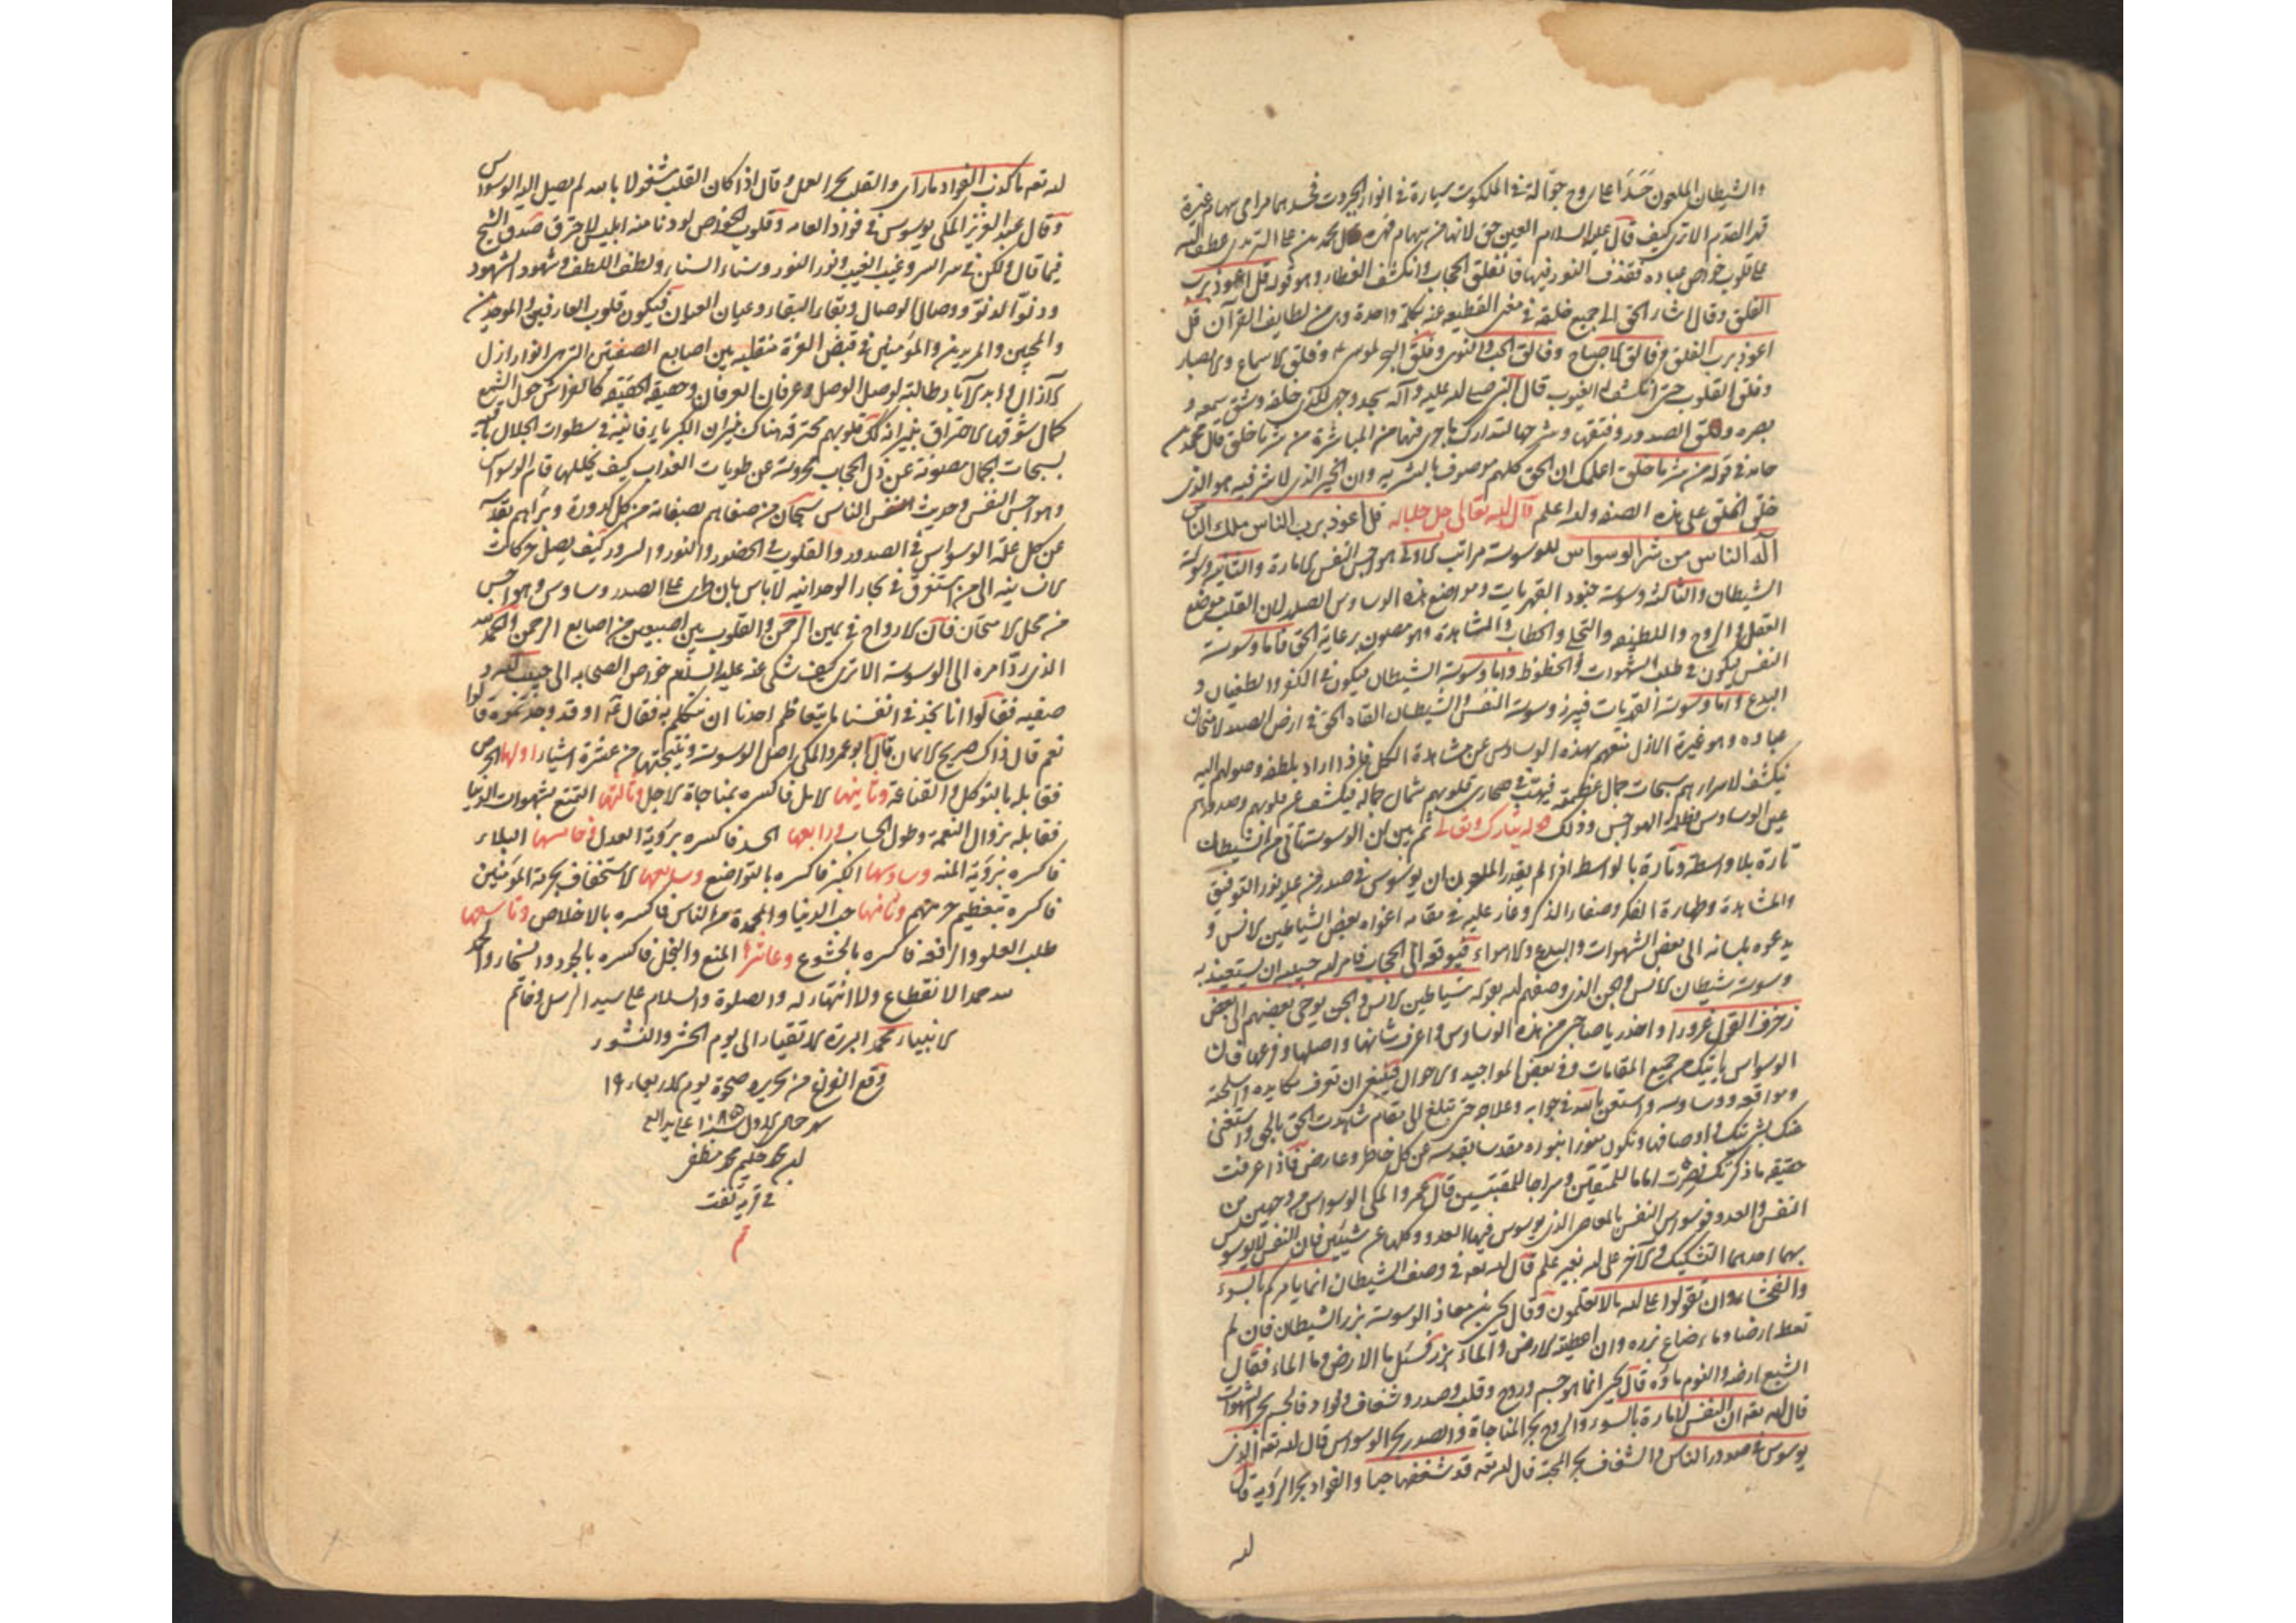 والشيطان الملعون حسدا على روح جوالة في الملكوت سيارة في انوار الجبروت فحسدهما مرامي سهام غيرة
قهر القدم الا ترى كيف قال عليه السلام العين حق لانها من سهام قهره قال محمد بن على الترمدى عطف الله
على قلوب خواص عباده فقذف النور فيها فانفلق الحجاب وانكشف الغطاء وهو قوله قل اعوذ برب
الفلق وقال اشار الحق الى جميع خلقه في معنى القطيعه عنه بكلمة واحدة وهى من لطايف القرآن قل
اعوذ برب الفلق فالق الاصباح وفالق الحب والنوى وفلق البحر لموسى وفلق الاسماع والابصار
وفلق القلوب حتى انكشف الغيوب قال النبي صلى الله عليه وآله سجد وجهى للذى خلقه وشق سمعه و
بصره وفلق الصدور وفتقها وشرحها لتدارك ما جرى فيها من المباشرة من شر ما خلق قال محمد بن
حامد في قوله من شر ما خلق اعلمك ان الخلق كلهم موصوف بالشريه وان الخير الذى لا شر فيه هو الذى
خلق الخلق على هذه الصفه والله اعلم قال الله تعالى جل جلاله قل اعوذ برب الناس ملك الناس
اله الناس من شر الوسواس للوسوسة مراتب الاولى هواجس النفس الامارة والثانيه وسوسة
الشيطان والثالثة وسوسة جنود القهريات ومواضع هذه الوساوس الصدر لان القلب موضع
العقل والروح واللطيفه والتجلى والخطاب والمشاهدة وهو مصون برعاية الحق فاما وسوسة
النفس يكون في طلب الشهوات والحظوظ واما وسوسة الشيطان يكون في الكفر والطغيان و
البدع واما وسوسة القهريات فيبرز وسوسة النفس والشيطان القاه الحق في ارض الصدر لامتحان
عباده وهو غيرة الازل تمنعهم بهذه الوساوس عن مشاهدة الكل فاذا اراد بلطفه وصولهم اليه
يكشف لاسرارهم سبحات جمال عظمته فيهب في صحارى قلوبهم شمال جماله فيكشف عن قلوبهم وصدورهم
عين الوساوس وظلمة الهواجس وذلك قوله تبارك وتعالى ثم بين ان الوسوسة تاتى من الشيطان
تارة بلا واسطة وتارة بالواسطة اذ الم يقدر الملعون ان يوسوس في صدر من عليه نور التوفيق
والمشاهدة وطهارة الفكر وصفاء الذكر وغار عليه في مقامه اغواه بعض الشياطين الانس و
يدعوه بلسانه الى بعض الشهوات والبدع والاهواء فيوقعه الى الحجاب فامر الله حبيبه ان يستعيذ به
وسوسة شيطان الانس والجن الذى وصفهم الله بقوله شياطين الانس والجن يوحى بعضهم الى بعض
زخرف القول غرورا واحذر يا صاحبى من هذه الوساوس واعرف شانها واصلها وفرعها فان
الوسواس ياتيك من جميع المقامات وفي بعض المواجيد والاحوال فينبغى ان تعرف مكايده واسلحته
ومواقعه ووساوسه واستعن بالله في جوابه وعلاجه حتى تبلغ الى مقام شاهدت الحق بالحق واستغنى
عنك بشريتك واوصافها وتكون منورا بنوره مقدسا بقدسه عن كل خاطر وعارض فاذا عرفت
حقيقه ما ذكرتك فصرت اماما للمتقين وسراجا للمقتبسين قال عمرو المكى الوسواس من وجهين من
النفس والعدو فوسواس النفس بالمعاصى الذى يوسوس فيها العدو وكلها غير شيئين فان النفس لا يوسوس
بهما احدهما التشكيك والآخر على الله بغير علم قال الله تعه في وصف الشيطان انما يامركم بالسوء
والفحشاء وان تقولوا على الله ما لا تعلمون وقال يحيى بن معاذ الوسوسة بزر الشيطان فان لم
تعط ارضا وماء ضاع بزره وان اعطيته الارض والماء بزر فسئل ما الارض وما الماء فقال
الشبع ارضه والنوم ماؤه قال يحيى انما هو جسم وروح وقلب وصدر وشغاف وفواد فالجسم بحر الشهوات
قال الله تعه ان النفس لامارة بالسوء والروح بحر المناجاة والصدر بحر الوسواس قال الله تعه الذى
يوسوس في صدور الناس والشغاف بحر المحبة قال الله تعه قد شغفها حبا والفواد بحر الرؤية قال
الله
الله تعه ما كذب الفواد ما راى والقلب بحر العمل وقال اذا كان القلب مشغولا بالله لم يصل اليه الوسواس
وقال عبد العزيز المكى يوسوس في فواد العامه وقلوب الخواص لو دنا منه ابليس لاحترق صدق الشيخ
فيما قال ولكن في سر السر وغيب الغيب ونور النور وسناء السناء ولطف اللطف وشهود الشهود
ودنو الدنو ووصال الوصال وبقاء البقاء وعيان العيان فيكون قلوب العارفين والموحدين
والمحبين والمريدين والمؤمنين في قبض العزة منقلبه بين اصابع الصفتين التى هى انوار ازل
الآزال وابد الآباد طالبة لوصل الوصل وعرفان العرفان وحقيقه الحقيقه كالفراش حول الشمع
كمال شوقها الاحتراق بنيرانه تلك قلوبهم محترقه هناك بنيران الكبرياء فانية في سطوات الجلال باقية
بسبحات الجمال مصونة عن ذل الحجاب محروسة عن طوبات العذاب كيف يخللها قتام الوسواس
وهواجس النفس وحديث الناس سبحان من صفاهم بصفاته من كل كدورة وبراهم بقدسه
عن كل علة الوسواس في الصدور والقلوب في الحضور والنور والسرور كيف يصل حركات
الانسانيه الى من استغرق في بحار الوحدانيه لا باس بان طرى على الصدر وساوس وهواجس
من محل الامتحان فان الارواح في يمين الرحمن والقلوب بين اصبعين من اصابع الرحمن والحمد لله
الذى رد امره الى الوسوسة الا ترى كيف شكى عنه عليه السلم خواص الصحابه الى حبيب الله و
صفيه فقالوا انا نجد في انفسنا ما يتعاظم احدنا ان يتكلم به فقال او قد وجدتموه قالوا
نعم قال ذاك صريح الايمان قال ابو عمرو المكى اصل الوسوسة ونتيجتها من عشرة اشياء اولها الحرص
فقابله بالتوكل والقناعة وثانيها الامل فاكسره بمفاجاة الاجل وثالثها التمتع بشهوات الدنيا
فقابله بزوال النعمة وطول الحساب ورابعها الحسد فاكسره برؤية العدل وخامسها البلاء
فاكسره برؤية المنه وسادسها الكبر فاكسره بالتواضع وسابعها الاستخفاف بحرمة المؤمنين
فاكسره بتعظيم حرمتهم وثامنها حب الدنيا والمحمدة من الناس فاكسره بالاخلاص وتاسعها
طلب العلو والرفعه فاكسره بالخشوع وعاشرها المنع والبخل فاكسره بالجود والسخاء والحمد
لله حمدا لا انقطاع ولا انتهاء له والصلوة والسلام على سيد الرسل وخاتم
الانبياء محمد البررة الاتقياء الى يوم الحشر والنشور
وقع الفراغ من تحريره ضحوة يوم الاربعاء ١٩
شهر جمادى الاول سنة ١٠٨٥ على يد
محمد حكيم محمد مظفر
في قرية تفت
تم